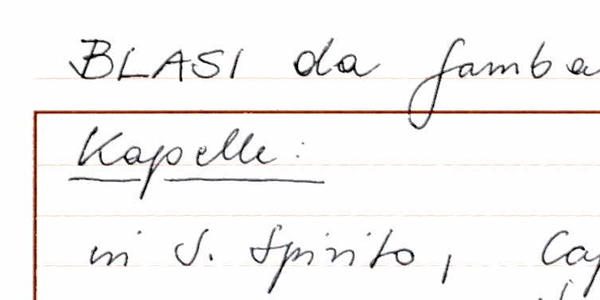 BLASI da Gamba
Kapelle:
in S. Spirito, Cap